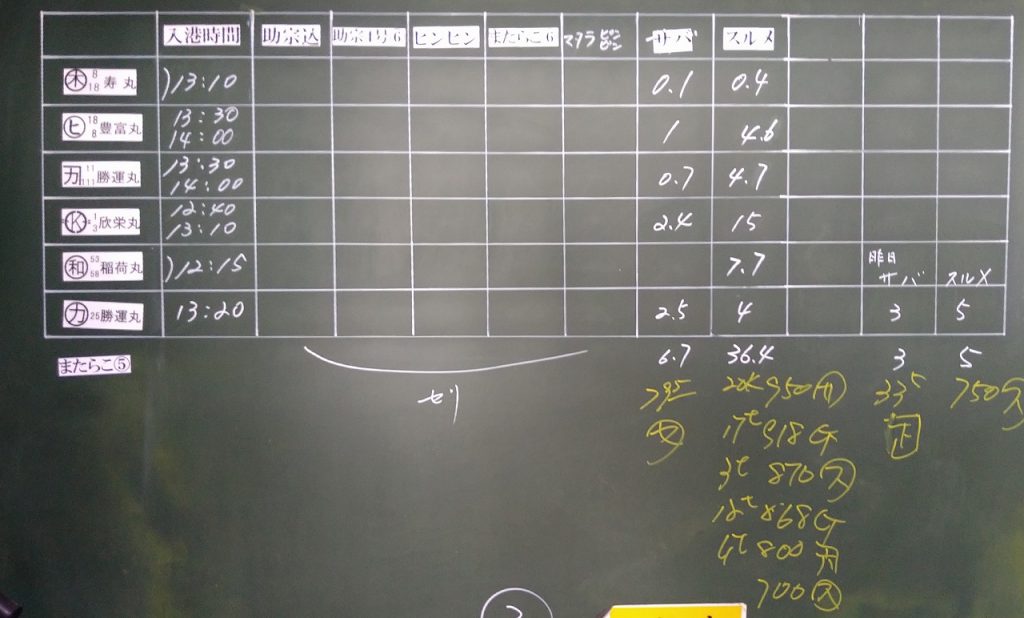 入港時間 助宗込 助宗1号6 ピンピン またらこ6 マダラピンピン サバ スルメ
木 8 18 寿丸 )13:10 0.1 0.4
ヒ 18 8 豊富丸 13:30 14:00 1 4.6
カ 11 111 勝運丸 13:30 14:00 0.7 4.7
K 1 3 欣栄丸 12:40 13:10 2.4 15
和 53 58 稲荷丸 )12:15 7.7 昨日 サバ スルメ
カ 25 勝運丸 13:20 2.5 4 3 5
またらこ⑤ 6.7 36.4 3 5
セリ
950 750 ス
17t 918 G
3t 870 ス
868 G
4t 800
700 ス